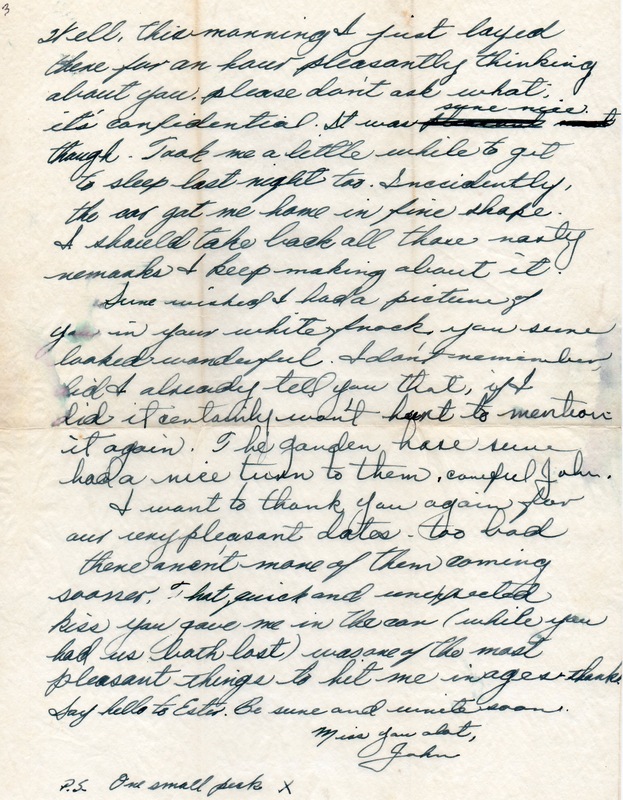 3
Well, this morning I just layed
there for an hour pleasantly thinking
about you, please don't ask what,
it's confidential. It was sure nice
though. Took me a little while to get
to sleep last night too. Inccidently,
the car got me home in fine shape.
I should take back all those nasty
remarks I keep making about it.
Sure wished I had a picture of
you in your white frock, you sure
looked wonderful. I don't remember,
did I already tell you that, if I
did it certainly won't hurt to mention
it again. The garden hose sure
had a nice turn to them, careful John.
I want to thank you again for
our very pleasant dates - too bad
there aren't more of them coming
sooner. That quick and unexpected
kiss you gave me in the car (while you
had us both lost) was one of the most
pleasant things to hit me in ages - thanks
Say hello to Ester. Be sure and write soon.
Miss you alot,
John
P.S. One small peck X